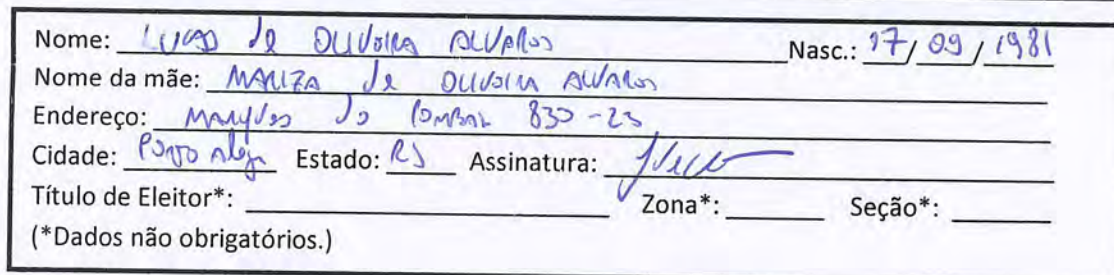 Nome: LUCAS de OLIVEIRA ALVARES Nasc.: 17/09/1981
Nome da mãe: MARIZA de OLIVEIRA ALVARES
Endereço: MARQUES do POMBAL 830-23
Cidade: PORTO Alegre Estado: RS Assinatura:
Título de Eleitor*: Zona*: Seção*:
(*Dados não obrigatórios.)